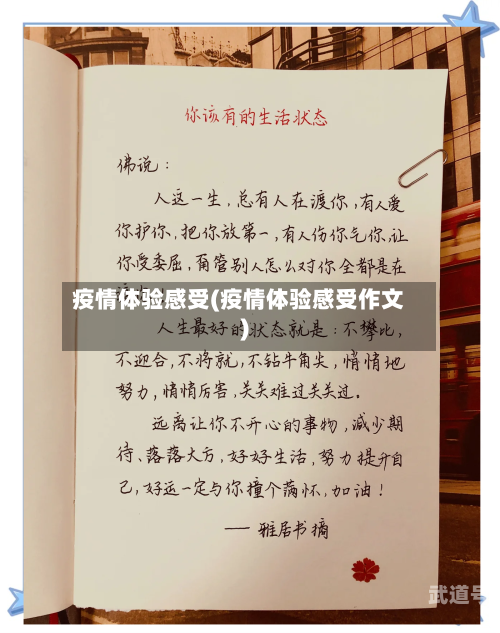 你该有的生活状态
佛说：
人这一生，总有人在渡你，有人爱
你护你，把你放第一，有人伤你气你，让
你受委屈，甭管别人怎么对你全都是在
疫情体验感受(疫情体验感受作文
)
人生最好的状态就是：不攀比，
不迎合，不将就，不钻牛角尖，悄悄地
努力，悄悄厉害，关关难过关关过。
远离让你不开心的事物，减少期
待、落落大方，好好生活，努力提升自
己，好运一定与你撞个满怀，加油！
—— 雅居书摘
武道号